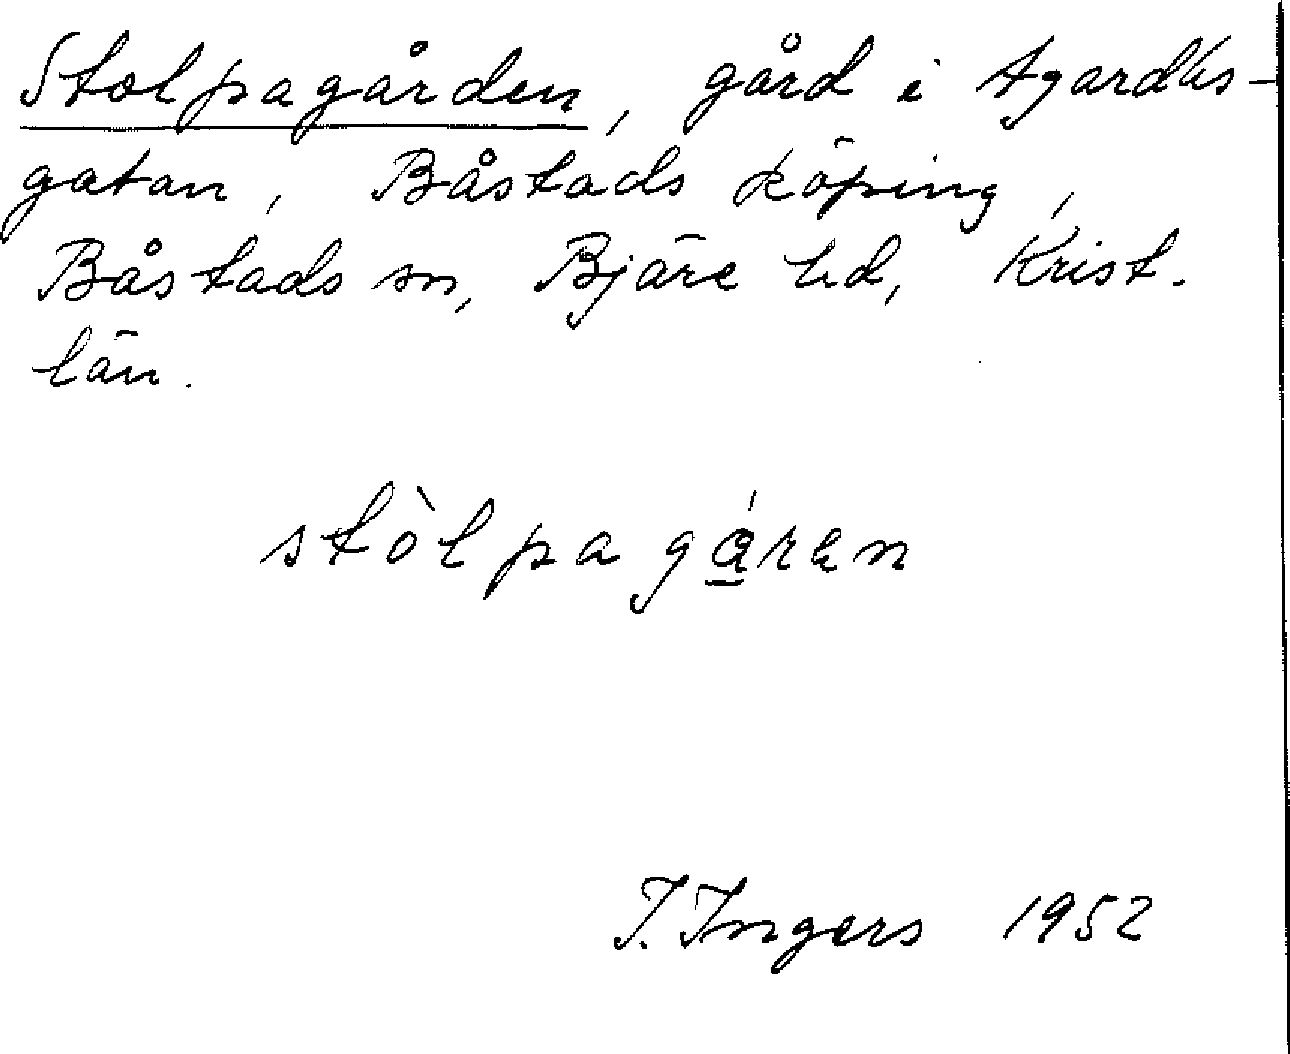 Stolpagården, gård i Agardhs-
gatan, Båstads köping,
Båstads sn, Bjäre hd, Krist.
län.
stòlpagá̱ren
I. Ingers 1952